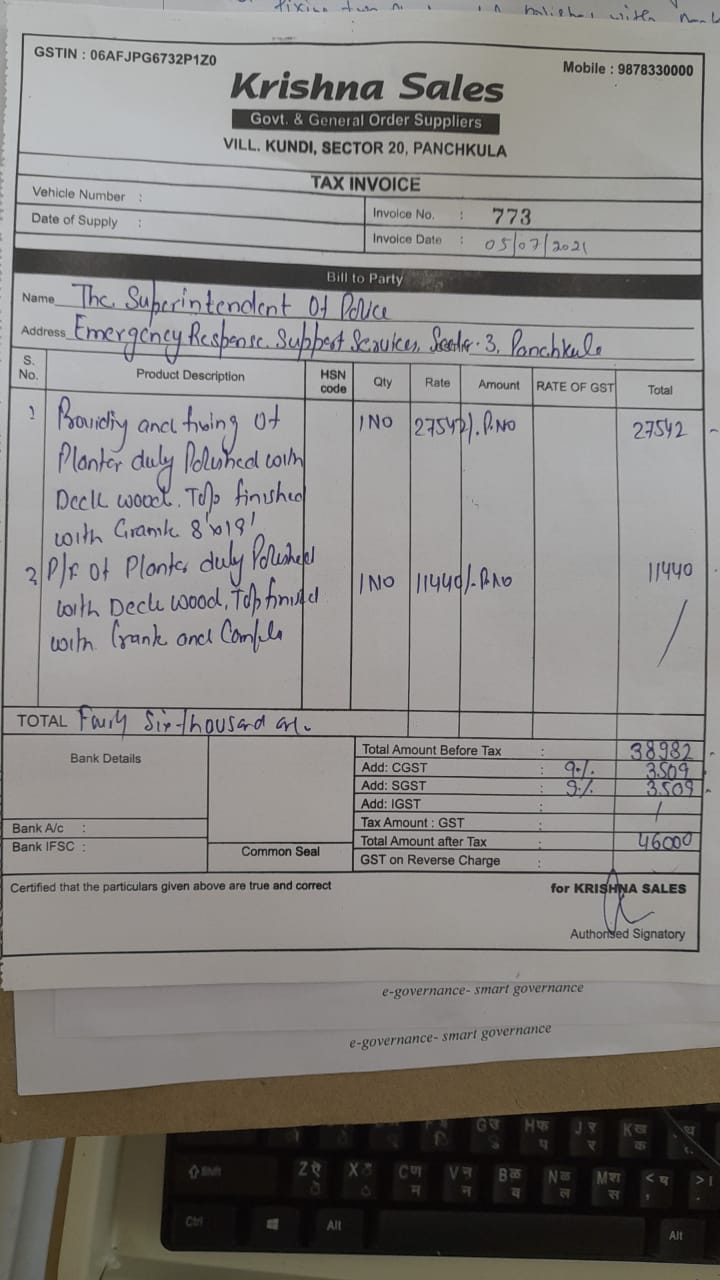 fixing
polished with
GSTIN : 06AFJPG6732P1Z0
Mobile : 9878330000
Krishna Sales
Govt. & General Order Suppliers
VILL. KUNDI, SECTOR 20, PANCHKULA
TAX INVOICE
Vehicle Number :
Date of Supply :
Invoice No. : 773
Invoice Date : 05/07/2021
Bill to Party
Name The Superintendent Of Police
Address Emergency Response Support Services, Sector 3, Panchkula
S. No. Product Description HSN code Qty Rate Amount RATE OF GST Total
1 Providing and fixing of 1 NO 27542/. P.NO 27542
Planter duly Polished with
Deck wood. Top finished
with Granite 8'x18'
2 P/F of Planter duly Polished 1 NO 11440/- P.NO 11440
with Deck wood, Top finished
with and
TOTAL Fourty Six thousand
Bank Details
Total Amount Before Tax : 38982
Add: CGST : 9% 3509
Add: SGST : 9% 3509
Add: IGST : /
Tax Amount : GST :
Total Amount after Tax : 46000
GST on Reverse Charge :
Bank A/c :
Bank IFSC :
Common Seal
Certified that the particulars given above are true and correct
for KRISHNA SALES
Authorised Signatory
e-governance- smart governance
e-governance- smart governance
Shift Z X C V B N M < >
Ctrl Alt Alt